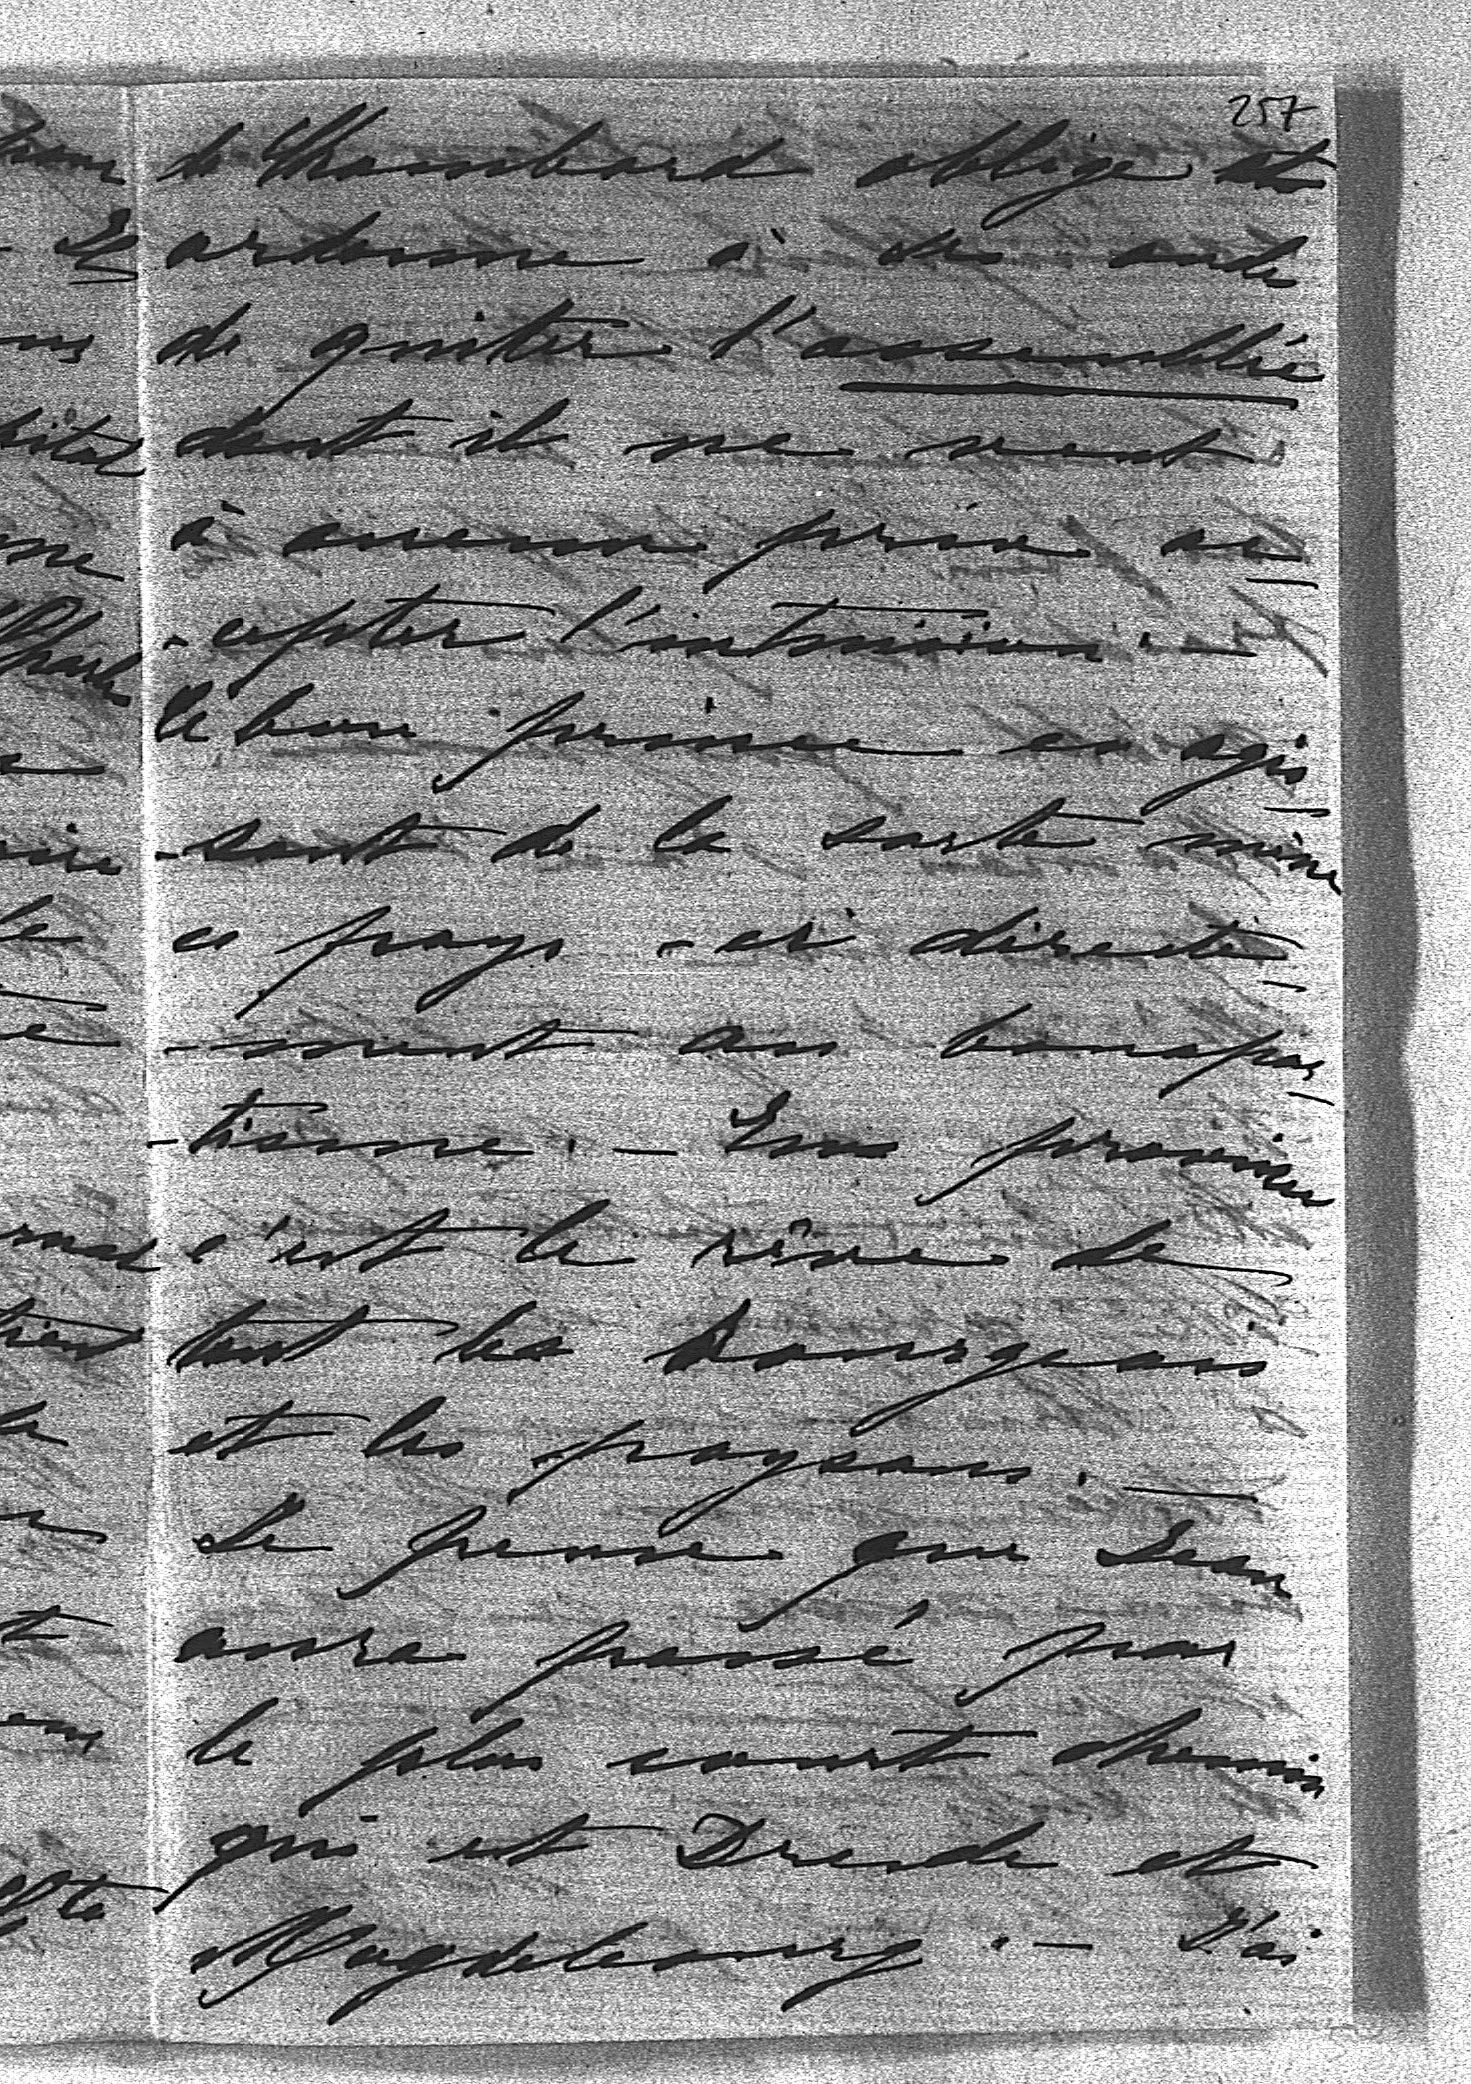 257
de Chambord oblige et
ordonne à ses amis
de quiter l'assemblée
dont il ne veut
à aucun prix ac
-cepter l'intrusion. —
Ce bon prince en agis
-sant de la sorte mène
ce pays-ci directe
-ment au bonapar
-tisme. — En province
c'est le rêve de
tout les bourgeois
et les paysans. —
Je pense que Jean
aura passé par
le plus court chemin
qui est Dresde et
Magdebourg. — J'ai